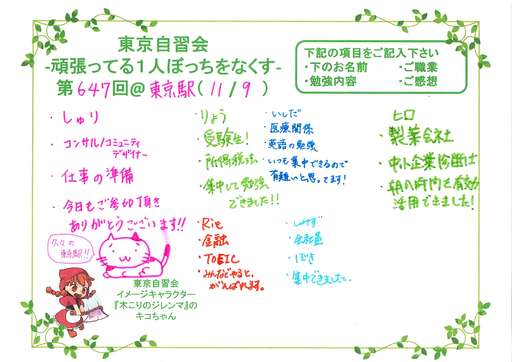 東京自習会
-頑張ってる1人ぼっちをなくす-
第647回@東京駅(11/9)
下記の項目をご記入下さい
・下のお名前 ・ご職業
・勉強内容 ・ご感想
・しゅり
・コンサル/コミュニティ
デザイナー
・仕事の準備
・今日もご参加頂き
ありがとうございます!!
・りょう
・受験生!
・所得税法
・集中して勉強
できました!!
・いしだ
・医療関係
・英語の勉強
・いつも集中できるので
有難いと思ってます!
・ヒロ
・製薬会社
・中小企業診断士
・朝の時間を有効
活用できました!
・Rie
・金融
・TOEIC
・みんなでやると、
がんばれます。
・しみず
・会社員
・ぼき
・集中できました。
東京駅!!
東京自習会
イメージキャラクター
『木こりのジレンマ』の
キコちゃん